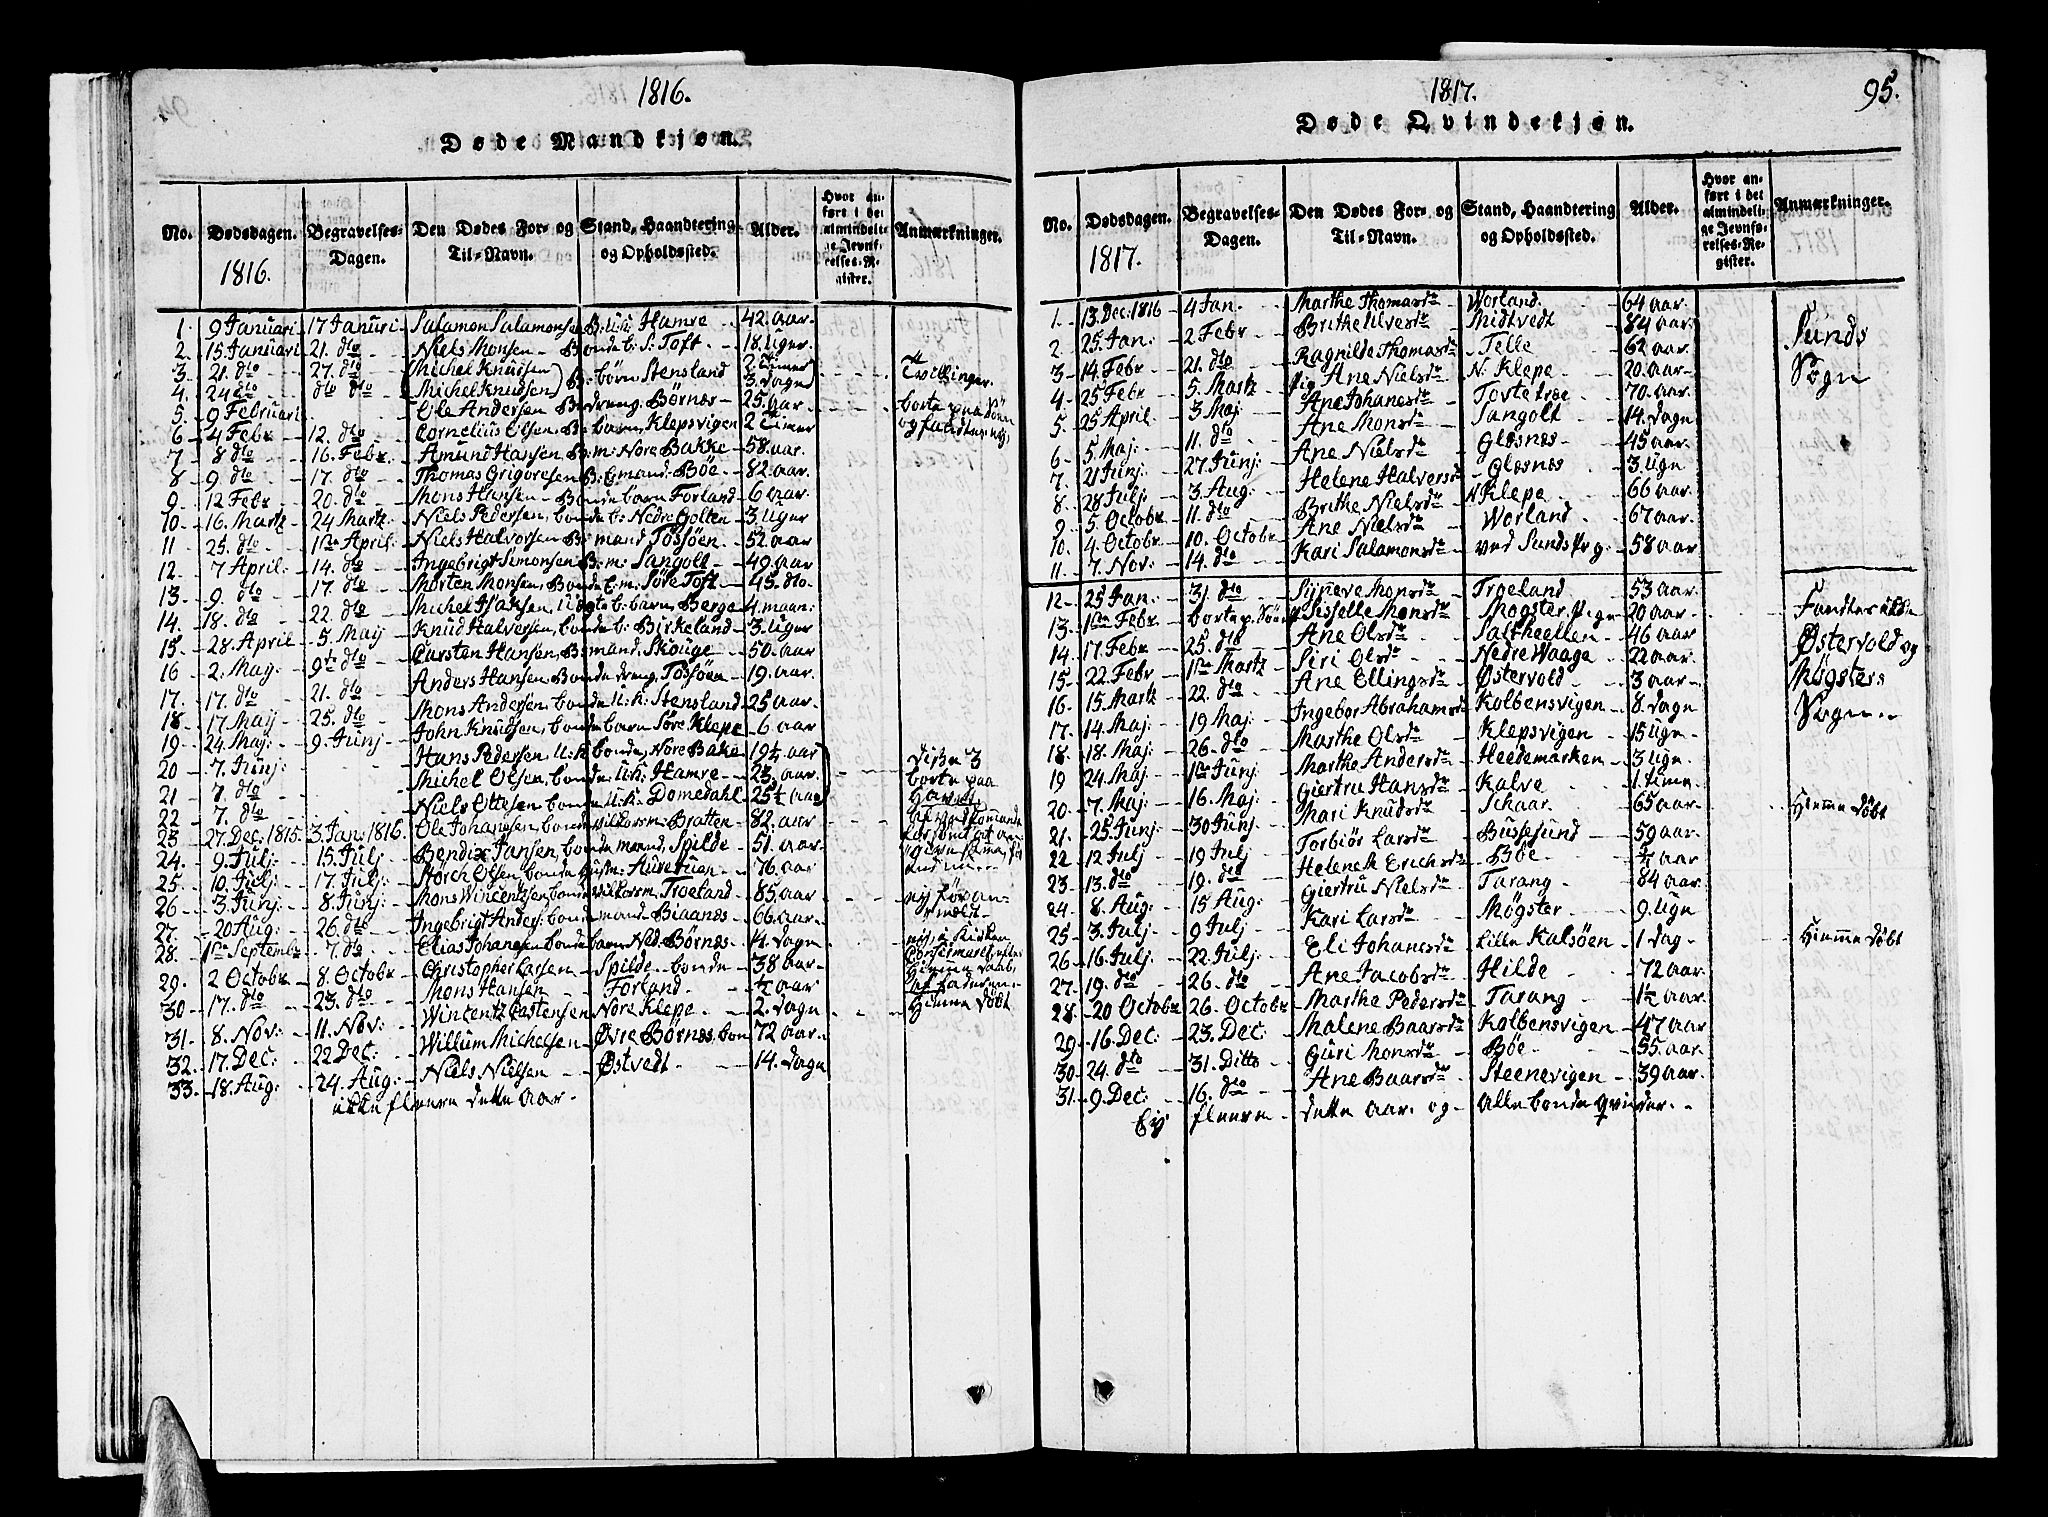 1816.
Døde Mandkjøn.
No. Dødsdagen. 1816. Begravelses-Dagen. Den Dødes For- og Til-Navn. Stand, Haandtering og Opholdssted. Alder. Hvor anført i det almindelige Jevnførelses-Register. Anmærkninger.
1. 9 Januari 17 Januri Salamon Salamonsen B: u: k: Hamre 42. aar.
2. 15 Januari 21. dto Niels Monsen Bonde b: S: Toft 18. Uger
3. 21. dto 27. dto Michel Knudsen 2 Timer Tvillinger
4. 24 dto dto dto Michel Knudsen B: børn Stensland 3. dage
5. 9 Februari Ole Andersen B: dreng. Børnæs 25. aar borte paa Søen
6. 4 Febr 12. dto Cornelius Olsen, B: barn, Klepsvigen 2 Timer og fandtes ej,
7. 8 dto 16. Febr. Amund Hansen B: m: Nore Bakke 58. aar.
8. 9. dto 17. dto Thomas Grigoresen B: Emand. Bøe 82. aar.
9. 12 Febr 20. dto Mons Hansen Bonde barn Forland 6 aar.
10. 16. Martz 24 Martz Niels Pedersen, bonde b: Nedre Golten 3. Uger
11 25. dto 1ste April. Niels Halvorsen B: mand Tøssøen 52. aar
12. 7 April: 14. dto Ingebrigt Simonsen B: m: Sangolt 49. aar
13. 9. dto 17. dto Morten Monsen, Bonde E: m: Søre Toft 45. dto.
14. 18. dto 22. dto Michel Isaksen, b: barn, Berge 4. maan:
15. 28. April 5. Maij Knud Halversen, bonde b: Birkeland 3. Uger
16 2. Maj: 9de dto Carsten Hansen, B: mand. Skouge 50. aar
17. 17. dto 21. dto Anders Hansen, Bonde dreng. Tøssøen 19. aar.
18. 17 Maij 25. dto Mons Andersen, bonde u: k: Stensland 25 aar
19. 24. Maj: 9. Junj John Knudsen bonde barn Søre Klepe 6 aar
20 7. Junj: Hans Pedersen, u: k bonde, Nore Bake 19½ aar disse 3
21 7. dto Michel Olsen, bonde u: k: Hamre 23. aar. borte paa
22 7. dto Niels Ottesen bonde u: k: Domedahl 25½ aar Havet.
23 27. Dec. 1815. 3 Jan: 1816. Ole Johansen, bonde vilkorsm: Bratten 82. aar
24. 9. Julj 15. Julj Bendix Jansen, bonde mand, Spilde 51. aar
25. 10. Julj 17. Julj: Storch Olsen, bonde husm: 76. aar
26. 3 Junj: 8. Junj: Mons Wincentzen bonde vilkorsm. Troeland 85. aar
27. 20 Aug: 26. dto Ingebrigt Anders: bonde mand Biaanæs 66. aar
28. 1ste Septembr 7. dto Elias Johansen bonde barn Ned. Børnæs 4. dage
29. 2 Octobr 8. Octobr Christopher Larsen Spilde bonde 38 aar.
30. 17. dto 23. dto Mons Hansen Forland. ½ aar
31. 8. Nov: 11. Nov: Wincentz Castensen Nore Klepe 2. dage Hiemme døbt
32. 17. Dec: 22 Dec: Willum Michelsen Øvre Børnæs, bon 72 aar.
33. 18. Aug: 24. Aug: Niels Nielsen Østvedt 14. dage
ikke fleere dette aar.
1817.
95.
Døde Qvindekjøn.
No. Dødsdagen. 1817. Begravelses-Dagen. Den Dødes For- og Til-Navn. Stand, Haandtering og Opholdssted. Alder. Hvor anført i det almindelige Jevnførelses-Register. Anmærkninger.
1. 13. Dec: 1816 4 Jan. Marthe Thomasdr Worland. 64 aar. Sunds
2. 25. Jan: 2 Febr Brithe Ilvesdr Midtvedt 84 aar. Sogn
3. 14. Febr 21. dto Ragnilde Thomasdr Telle 62 aar.
4. 25 Febr 5. Martz pig Ane Nielsdr N. Klepe 20. aar.
5. 25 April 3 Maj: Ane Johanesdr Toftetræe 70. aar.
6. 5. Maj: 11. dto Ane Monsdr Sangolt 14. dage
7. 21 Junj: 27 Junj: Ane Nielsdr Glæsnæs 45 aar.
8. 28 Julj: 3 Aug: Helene Halversdr Glæsnæs 3. uger
9. 5. Octobr 11. dto Brithe Nielsdr N Klepe 66 aar.
10. 4. Octobr 10. Octobr Ane Nielsdr Worland 67 aar.
11. 7. Nov: 14. dto Kari Salamonsdr ved Sunds Pr. g: 58 aar
12. 25 Jan: 31. dto Synneve Monsdr Troeland 53 aar Fandtes ikke
13. 1ste Febr borte p. Søen Sisselle Monsdr Mogster, 20 aar Østervold og
14. 17. Febr 25. dto Ane Olsdr Saltheellen 46 aar Møgsters
15. 22 Febr 1ste Martz Siri Olsdr Nedre Waage 22 aar Sogn
16. 15. Martz 22. dto Ane Ellingsdr Østervold 3 aar
17. 14. Maj: 19 Maj: Ingebor Abrahamsdr Kolbensvigen 8. dage
18. 18. Maj: 26. dto Marthe Olsdr Klepsvigen 15 uger
19 24. Maj: 1ste Junj: Marthe Andersdr Heedemarken 3 uger
20. 7. Maj: 16. Maj: Giertru Hansdr Kalve 1. time Hiemme døbt
21. 25 Junj: 30 Junj: Mari Knudsdr Schaar 65 aar.
22 12 Julj 19 Julj Torbiør Larsdr Bussesund 59 aar
23. 13. dto 19. dto Helene K Erichsdr Bøe ½ aar
24 8. Aug: 15 Aug: Giertru Nielsdr Tarang 84 aar
25 3. Julj: 9 Julj: Kari Larsdr Møgster 9. uger
26 16. Julj: 22 Julj: Eli Johanesdr Lille Kalsøen 1 dag Hiemme døbt
27. 19. dto 26. dto Ane Jacobsdr Hilde 72 aar.
28. 20 Octobr 26. Octobr Marthe Pedersdr Tarang 1½ aar.
29. 16. Dec: 23. Dec: Malene Baarsdr Kolbensvigen 47 aar
30. 24. dto 31. Ditto Guri Monsdr Bøe 55. aar.
31. 9. Dec: 16. dto Ane Baarsdr Steenevigen 39 aar.
Ey fleere dette aar. og alle bonde qvinder.